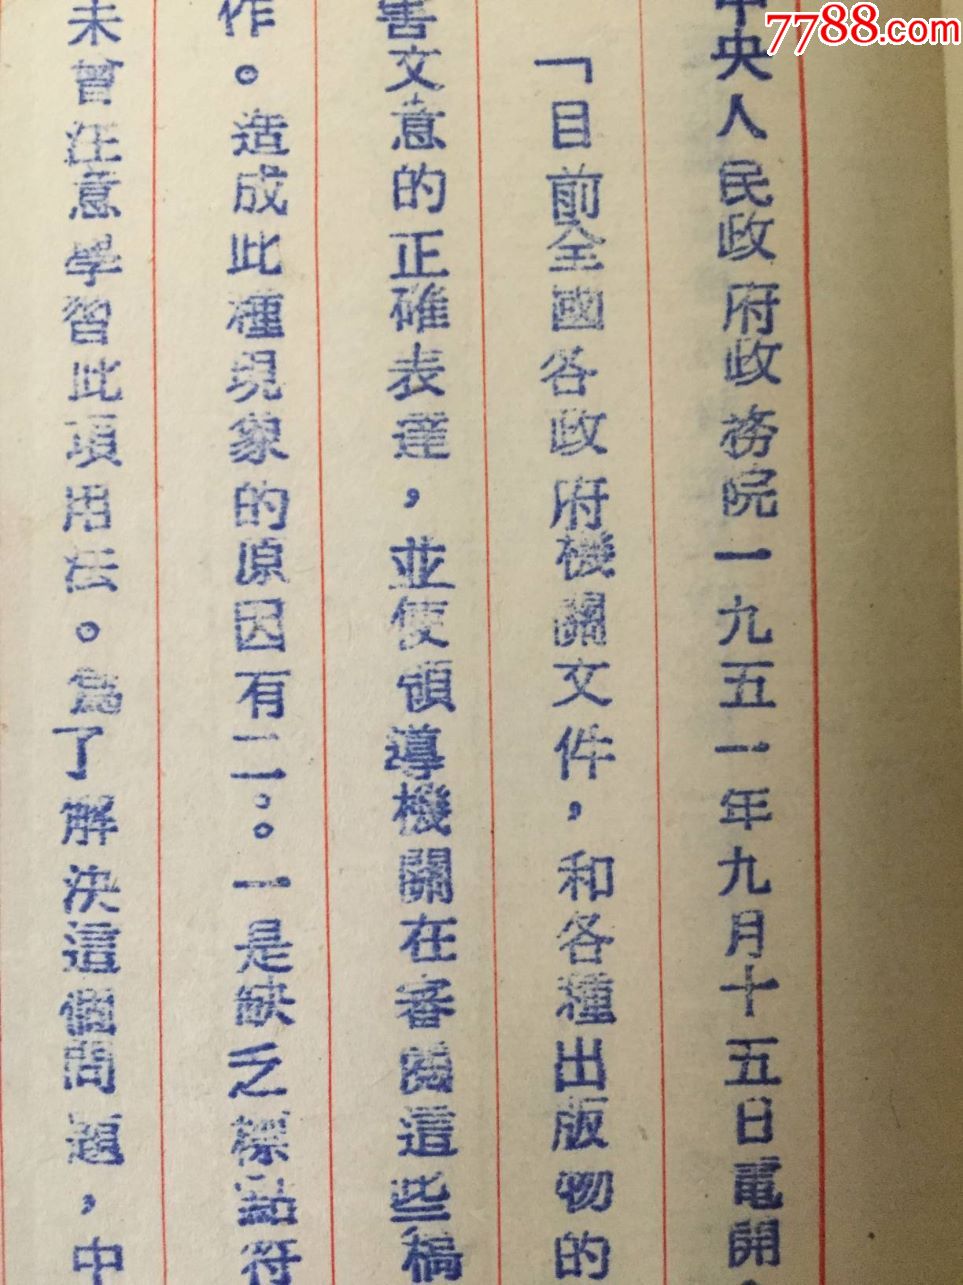 中央人民政府政務院一九五一年九月十五日電開
「目前全國各政府機關文件，和各種出版物的
害文意的正確表達，並使領導機關在審閱這些稿
作。造成此種現象的原因有二。。一是缺乏標點符
未曾注意學習此項用法。為了解決這個問題，中
7788.com